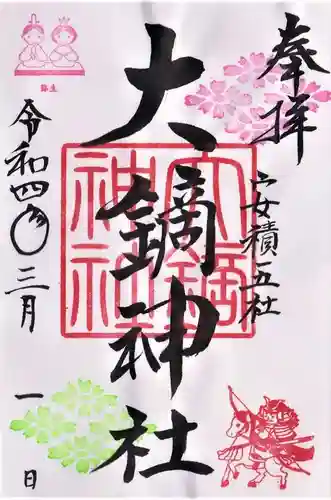 奉拝
安積五社
大鏑神社
大鏑神社
令和四年三月一日
弥生